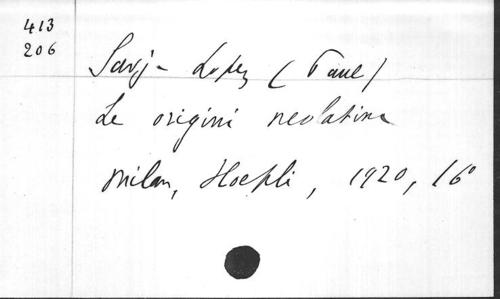 413
206
Savj- Lopez (Paul)
Le origini neolatine
Milan, Hoepli, 1920, 16°